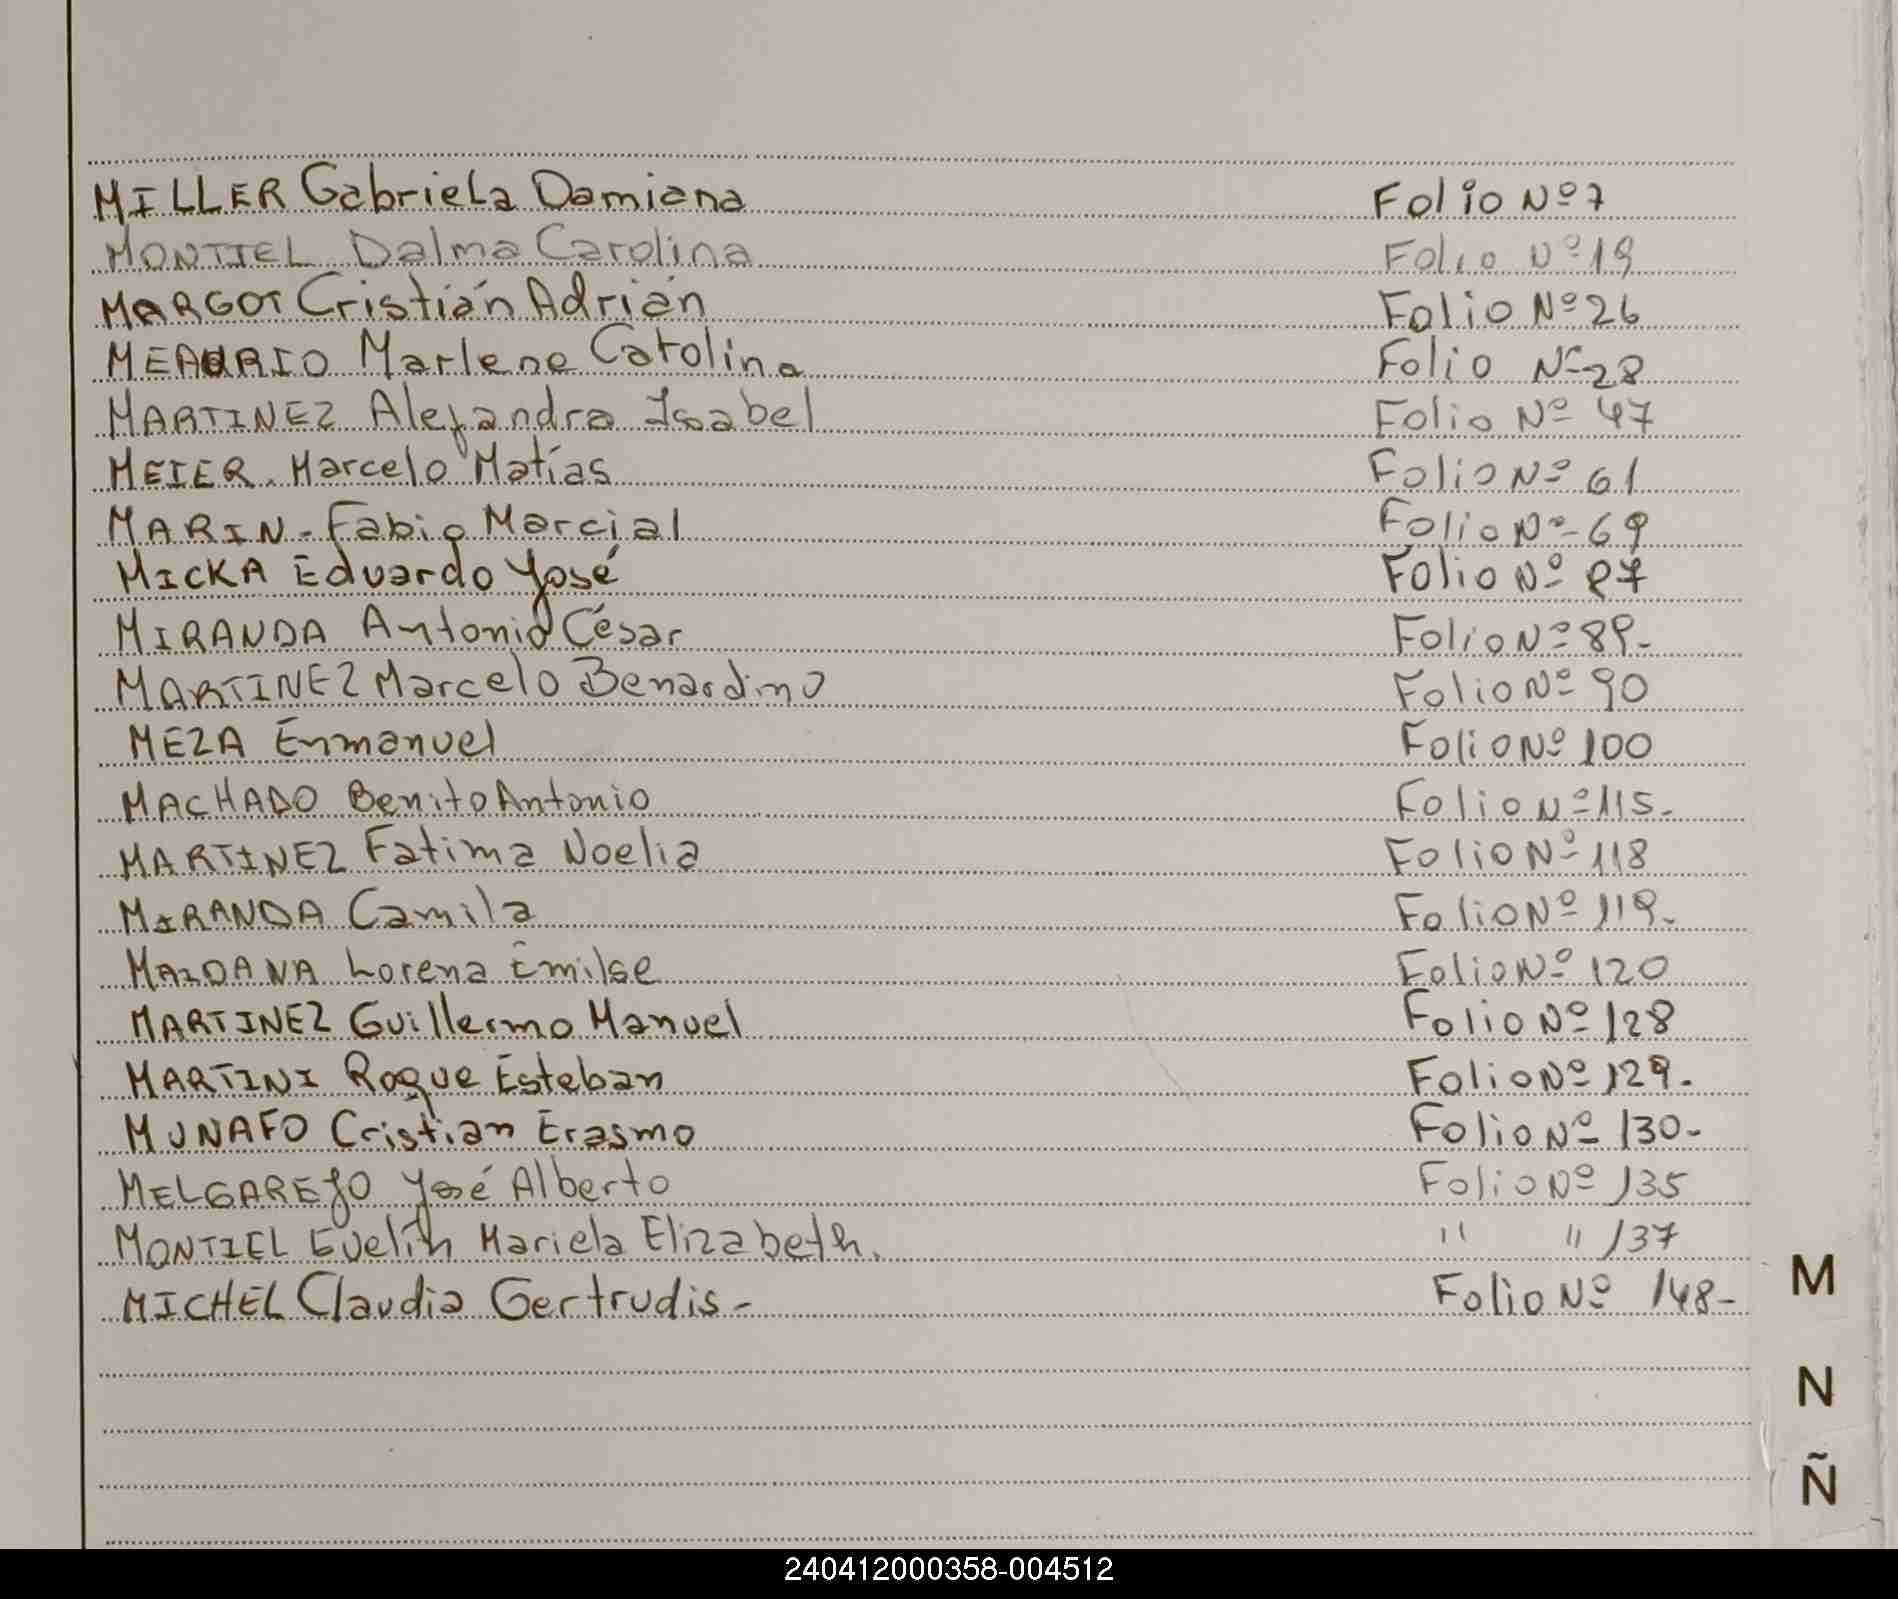 MILLER Gabriela Damiana Folio Nº 7
MONTIEL Dalma Carolina Folio Nº 19
MARGOT Cristián Adrián Folio Nº 26
MEAURIO Marlene Carolina Folio Nº 28
MARTINEZ Alejandra Isabel Folio Nº 47
MEIER. Marcelo Matías Folio Nº 61
MARIN - Fabio Marcial Folio Nº 69
MICKA Eduardo José Folio Nº 87
MIRANDA Antonio César Folio Nº 89-
MARTINEZ Marcelo Benardino Folio Nº 90
MEZA Enmanuel Folio Nº 100
MACHADO Benito Antonio Folio Nº 115-
MARTINEZ Fatima Noelia Folio Nº 118
MIRANDA Camila Folio Nº 119-
MALDANA Lorena Emilse Folio Nº 120
MARTINEZ Guillermo Manuel Folio Nº 128
MARTINI Roque Esteban Folio Nº 129.
MUNAFO Cristian Erasmo Folio Nº 130-
MELGAREJO José Alberto Folio Nº 135
MONTIEL Evelin Mariela Elizabeth. " " 137
MICHEL Claudia Gertrudis - Folio Nº 148-
M
N
Ñ
240412000358-004512